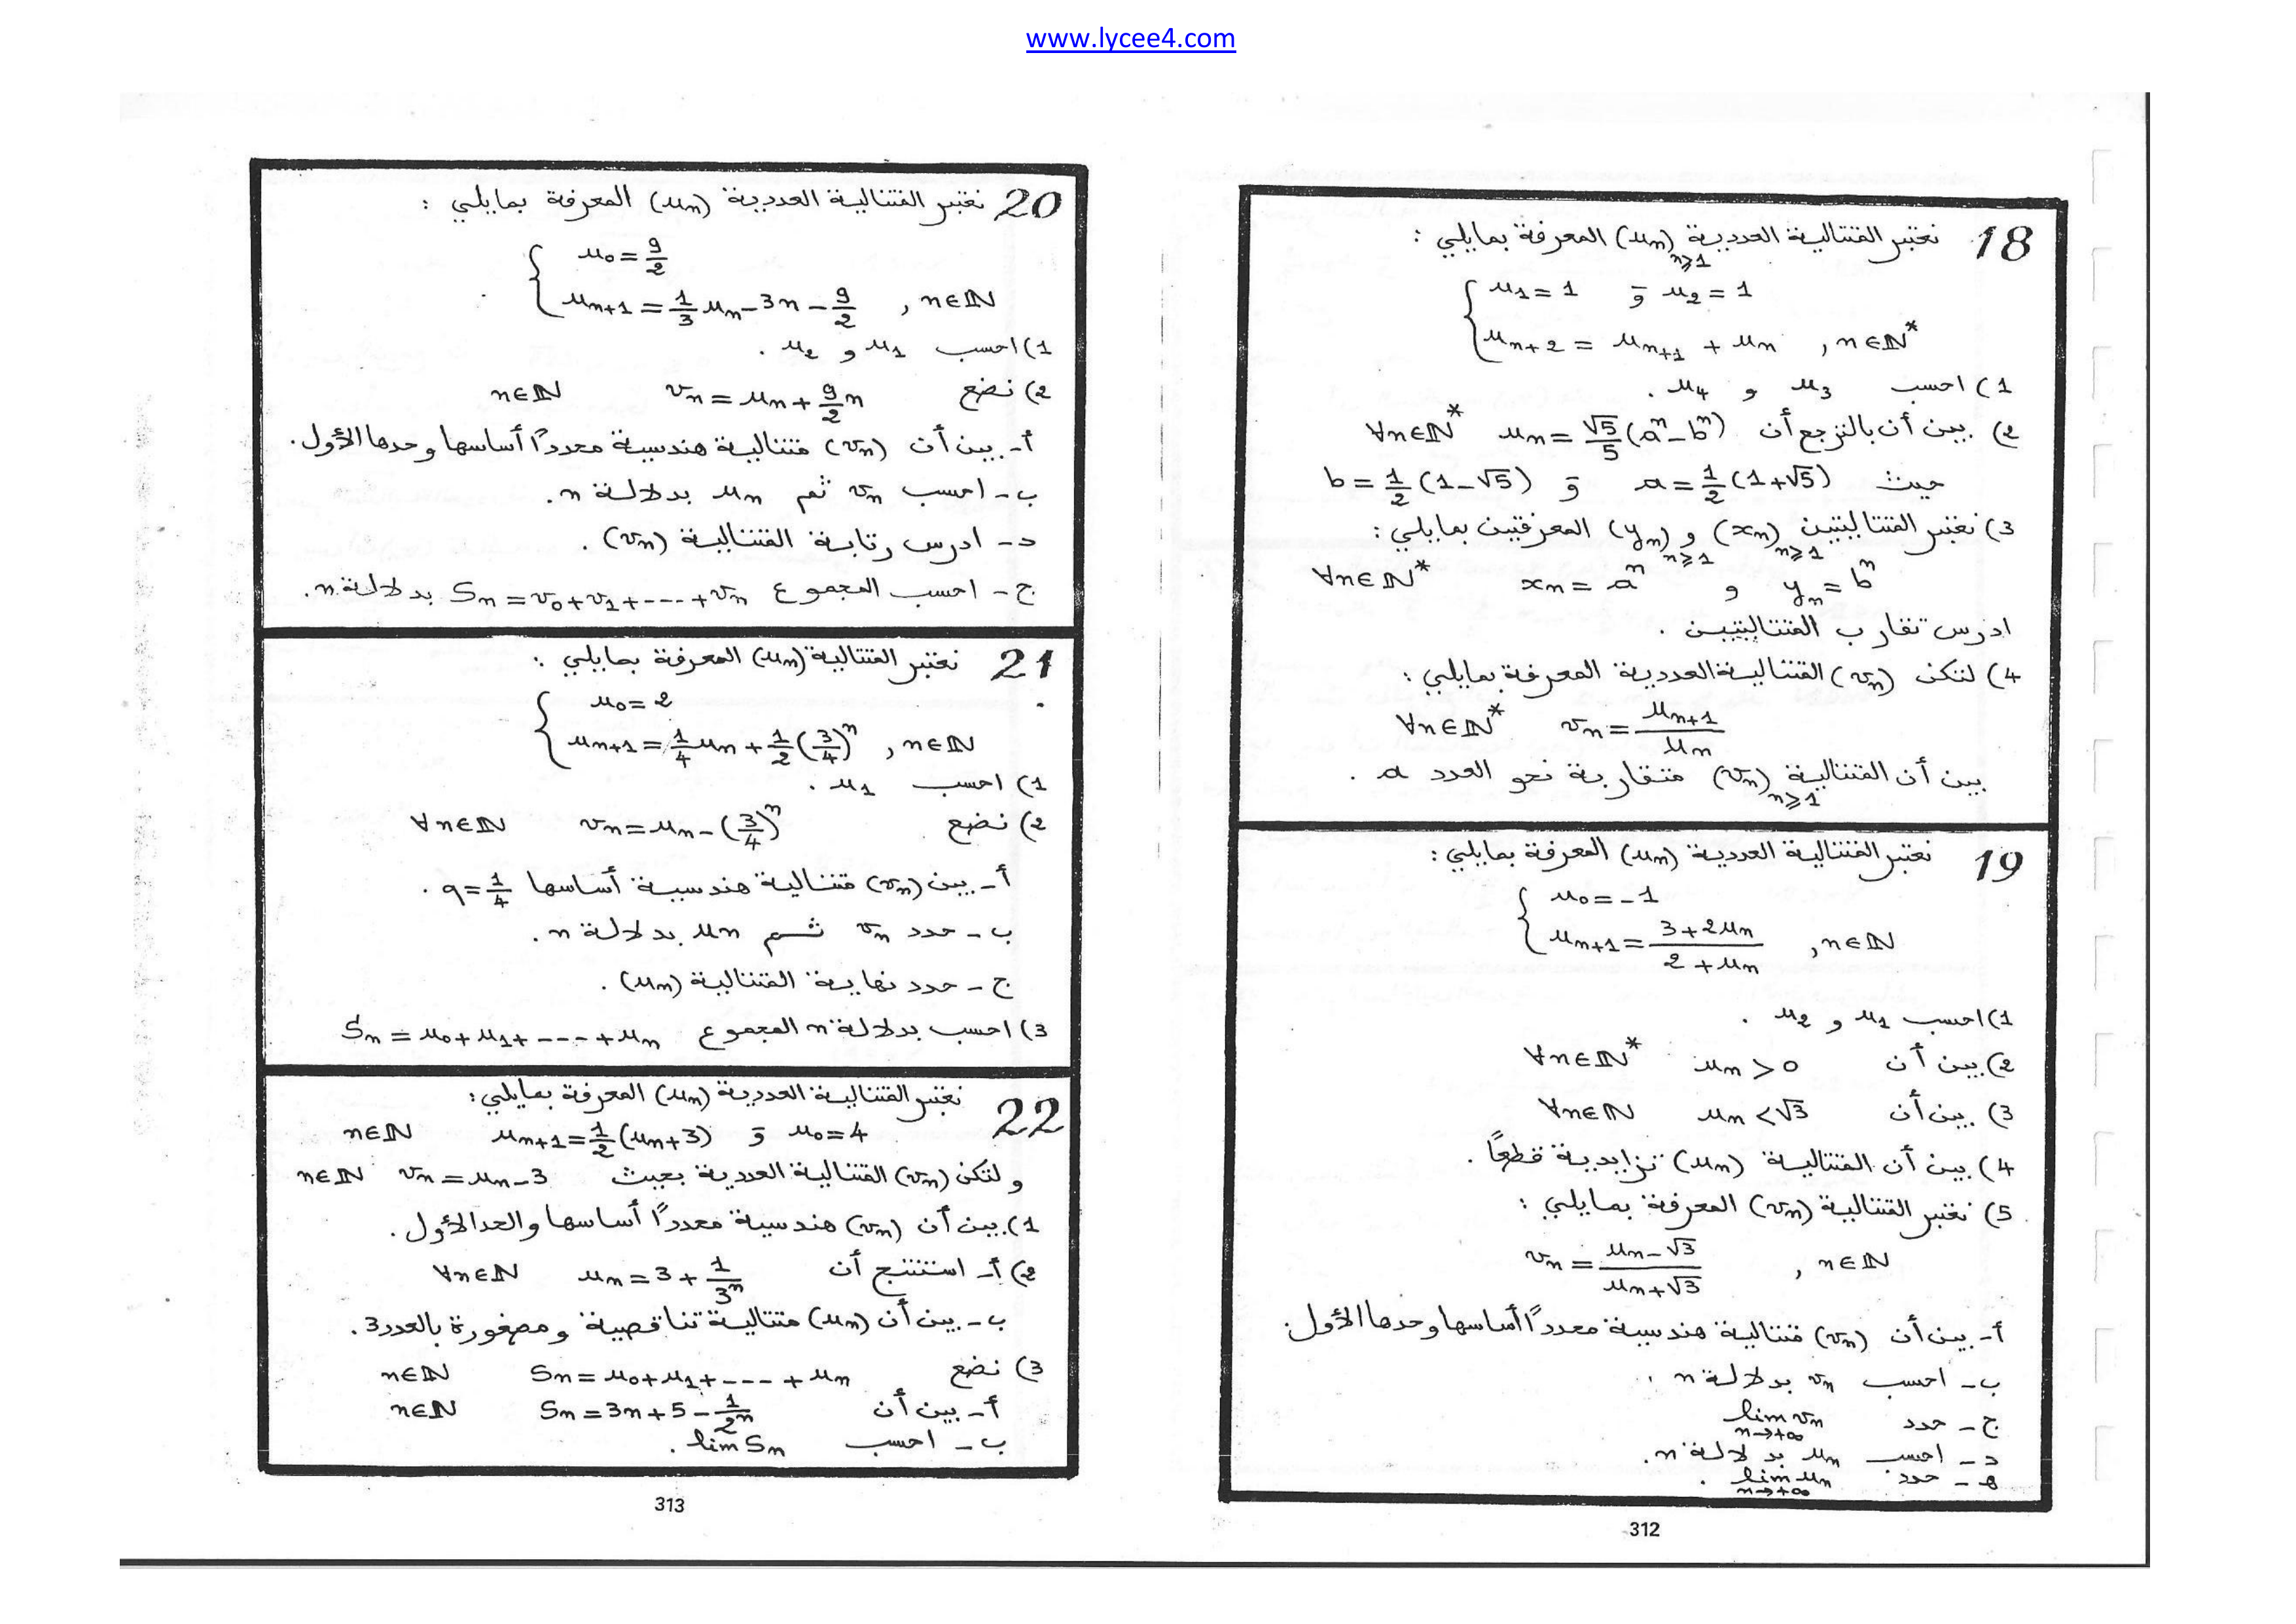 www.lycee4.com
18 نعتبر المتتالية العددية (u_n)_{n≥1} المعرفة بمايلي :
u_1 = 1 و u_2 = 1
u_{n+2} = u_{n+1} + u_n , n∈ℕ*
1) احسب u_3 و u_4 .
2) بين أن بالترجع أن u_n = √5/5 (a^n - b^n) ∀n∈ℕ*
حيث a = 1/2 (1+√5) و b = 1/2 (1-√5)
3) نعتبر المتتاليتين (x_n)_{n≥1} و (y_n)_{n≥1} المعرفتين بمايلي :
∀n∈ℕ* x_n = a^n و y_n = b^n
ادرس تقارب المتتاليتين .
4) لتكن (v_n) المتتالية العددية المعرفة بمايلي :
∀n∈ℕ* v_n = u_{n+1}/u_n
بين أن المتتالية (v_n)_{n≥1} متقاربة نحو العدد a .
19 نعتبر المتتالية العددية (u_n) المعرفة بمايلي :
u_0 = -1
u_{n+1} = (3+2u_n)/(2+u_n) , n∈ℕ
1) احسب u_1 و u_2 .
2) بين أن u_n > 0 ∀n∈ℕ*
3) بين أن u_n < √3 ∀n∈ℕ
4) بين أن المتتالية (u_n) تزايدية قطعاً .
5) نعتبر المتتالية (v_n) المعرفة بمايلي :
v_n = (u_n - √3)/(u_n + √3) , n∈ℕ
أ- بين أن (v_n) متتالية هندسية محدداً أساسها وحدها الأول.
ب- احسب v_n بدلالة n .
ج- حدد lim_{n→+∞} v_n
د- احسب u_n بدلالة n .
ه- حدد lim_{n→+∞} u_n .
312
20 نعتبر المتتالية العددية (u_n) المعرفة بمايلي :
u_0 = 9/2
u_{n+1} = 1/3 u_n - 3n - 9/2 , n∈ℕ
1) احسب u_1 و u_2 .
2) نضع v_n = u_n + 9/2 n n∈ℕ
أ- بين أن (v_n) متتالية هندسية محدداً أساسها وحدها الأول.
ب- احسب v_n ثم u_n بدلالة n .
د- ادرس رتابة المتتالية (v_n) .
ج- احسب المجموع S_n = v_0 + v_1 + ---- + v_n بدلالة n .
21 نعتبر المتتالية (u_n) المعرفة بمايلي :
u_0 = 2
u_{n+1} = 1/4 u_n + 1/2 (3/4)^n , n∈ℕ
1) احسب u_1 .
2) نضع v_n = u_n - (3/4)^n ∀n∈ℕ
أ- بين (v_n) متتالية هندسية أساسها q = 1/4 .
ب- حدد v_n ثم u_n بدلالة n .
ج- حدد نهاية المتتالية (u_n) .
3) احسب بدلالة n المجموع S_n = u_0 + u_1 + ---- + u_n
22 نعتبر المتتالية العددية (u_n) المعرفة بمايلي :
u_0 = 4 و u_{n+1} = 1/2 (u_n + 3) n∈ℕ
و لتكن (v_n) المتتالية العددية بحيث v_n = u_n - 3 n∈ℕ
1) بين أن (v_n) هندسية محدداً أساسها والحد الأول .
2) أ- استنتج أن u_n = 3 + 1/3^n ∀n∈ℕ
ب- بين أن (u_n) متتالية تناقصية ومصغورة بالعدد 3 .
3) نضع S_n = u_0 + u_1 + --- + u_n n∈ℕ
أ- بين أن S_n = 3n + 5 - 1/2^n n∈ℕ
ب- احسب lim S_n .
313